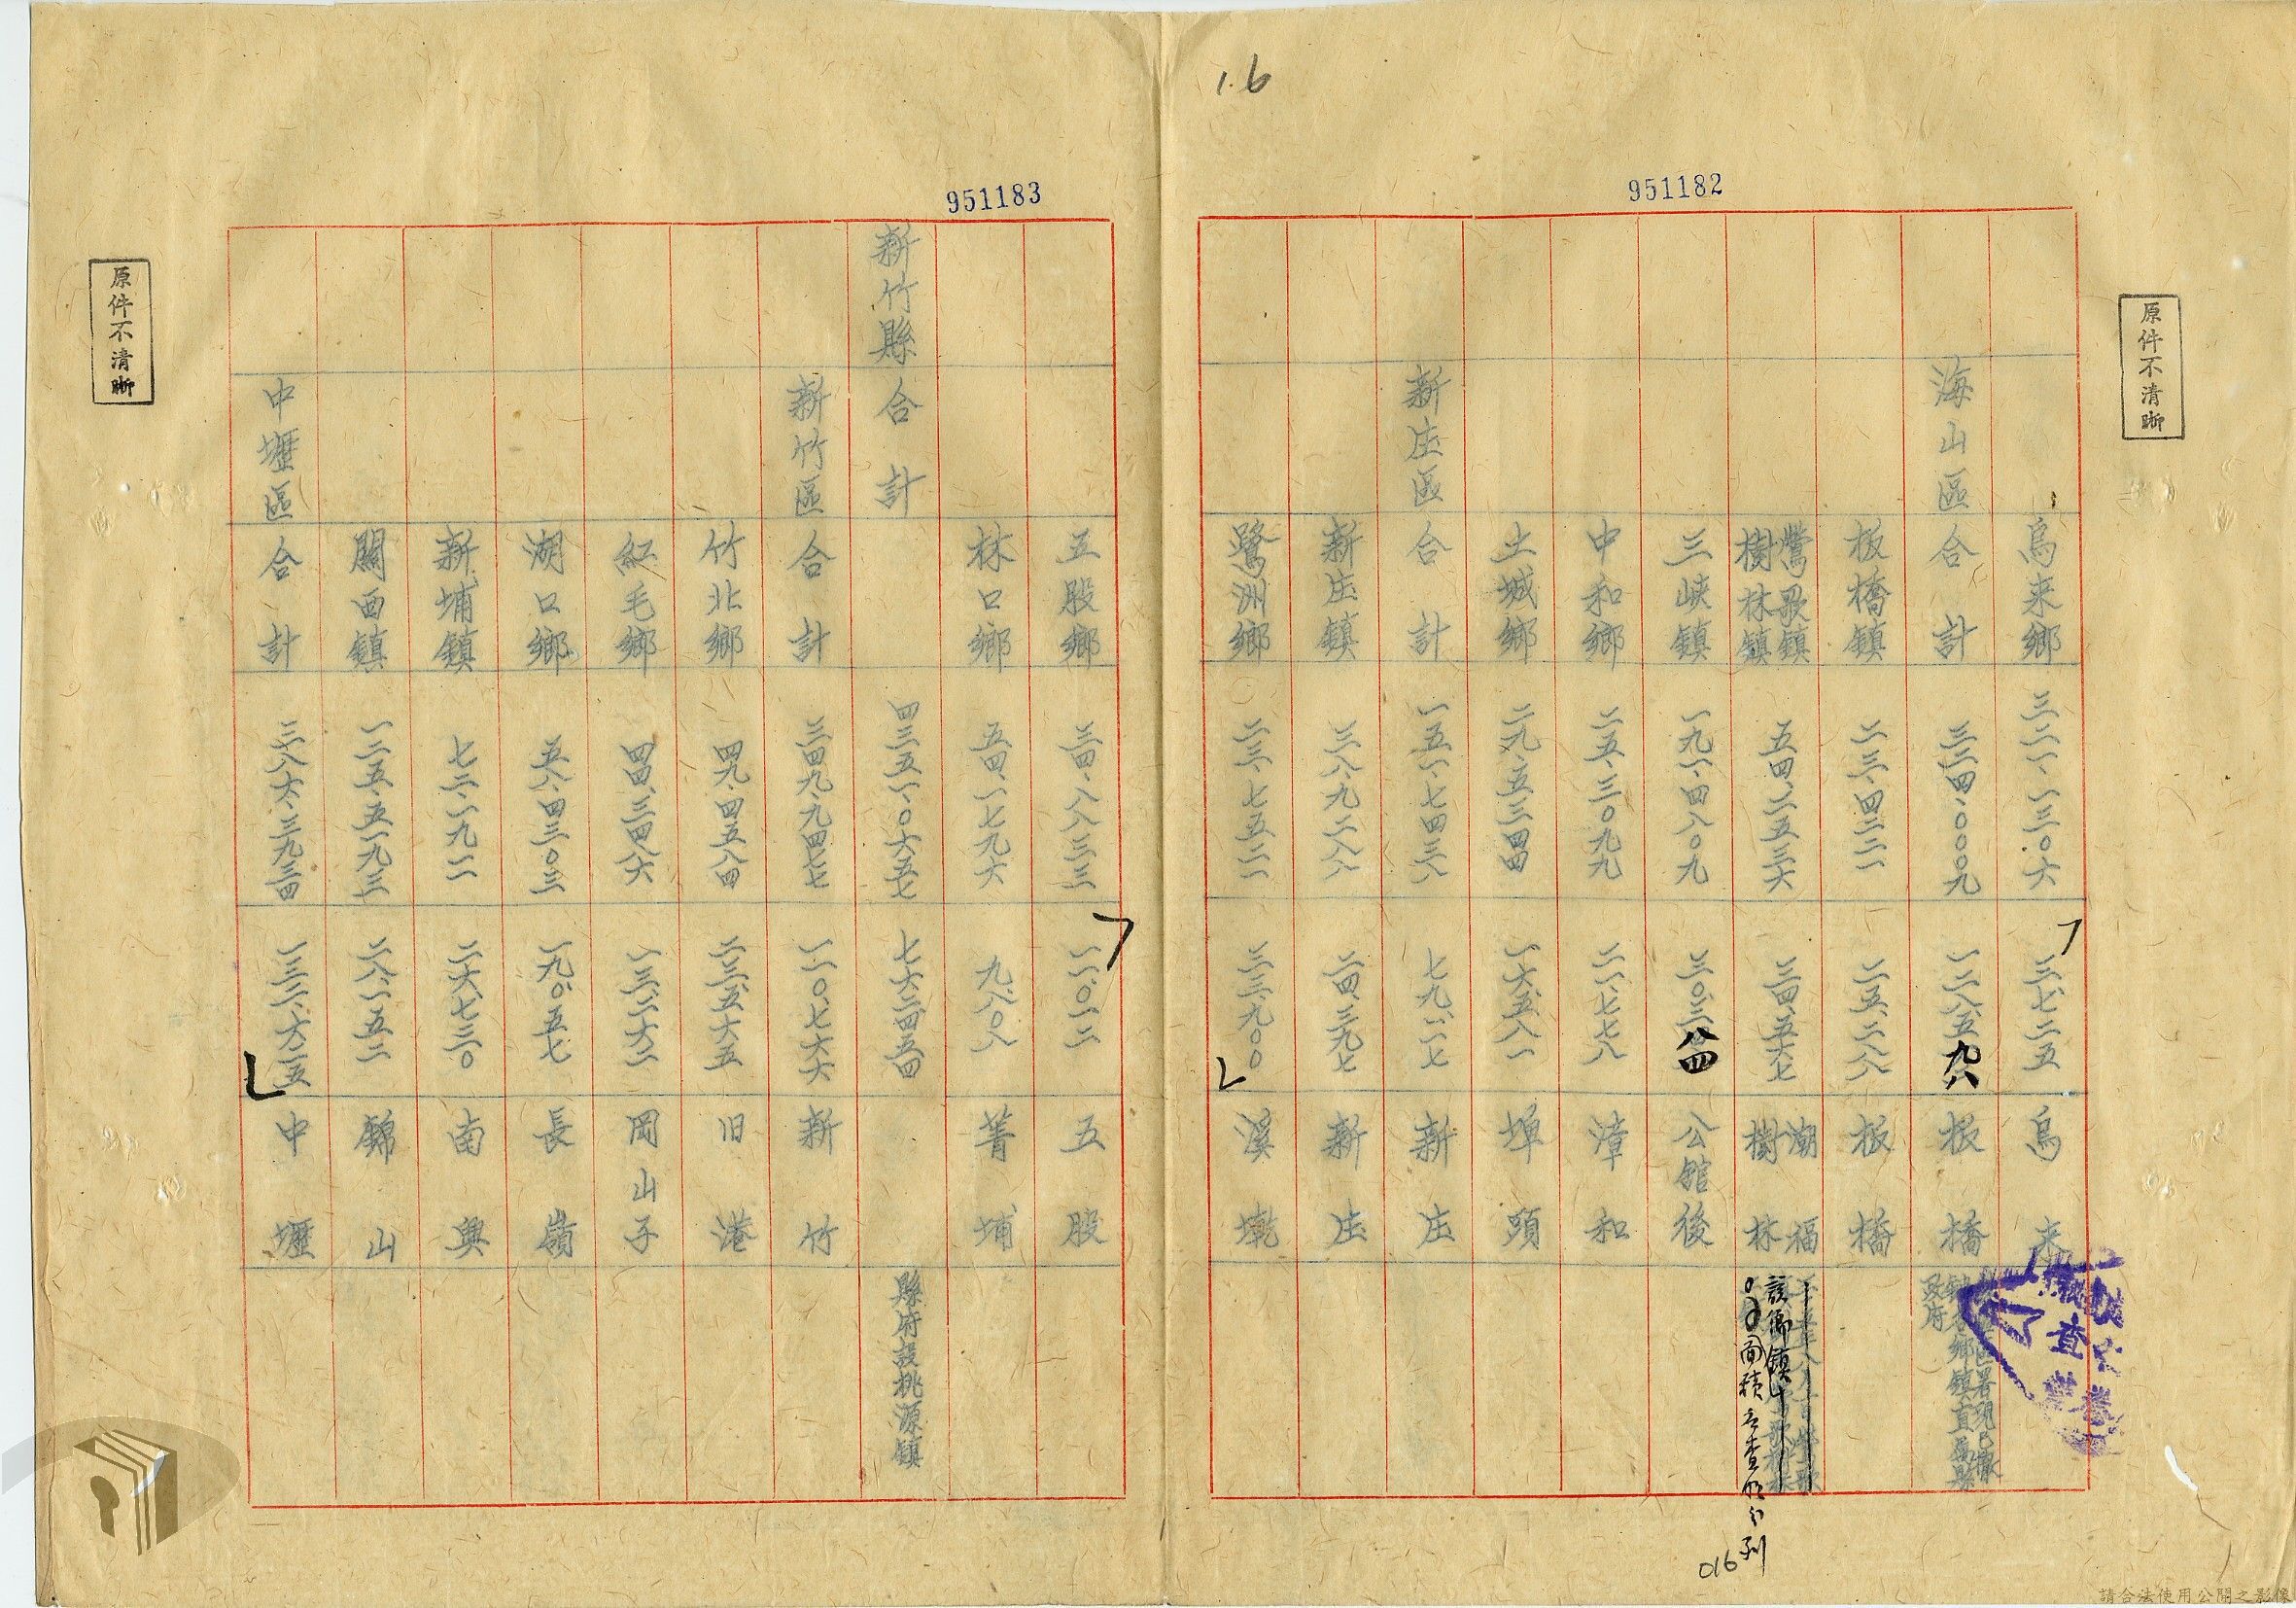 1.6
951182
原件不清晰
烏来鄉 三二一、一三〇六 三、七二五 烏来
海山區 合計 三二四、〇〇〇九 一二八、五九八 板橋
板橋鎮 二三、四二二一 二五、二八八 板橋
鶯歌鎮 樹林鎮 五四、二五三六 三四、五六七 潮福 樹林
該鄉鎮 面積 查明分列
三峡鎮 一九一、四八〇九 三〇、三八四 公館後
中和鄉 二五、三〇九九 二一、七七八 漳和
土城鄉 二九、五三四四 一六、五八一 埤頭
新庄區 合計 一五一、七四三八 七九、一一七 新庄
新庄鎮 三八、九二八八 二四、三九七 新庄
鷺洲鄉 二三、七五二二 三三、九〇〇 溪墘
016
951183
原件不清晰
五股鄉 三四、八八三三 一一、〇一二 五股
林口鄉 五四、一七九六 九、八〇八 菁埔
新竹縣 合計 四三五一、〇六五七 七六二、四五四 縣府設桃源鎮
新竹區 合計 三四九、九四七七 一一〇、七六六 新竹
竹北鄉 四九、四五八四 二三、五六五 旧港
紅毛鄉 四四、三四八六 一三、二六二 岡山子
湖口鄉 五八、四三〇三 一九、〇五七 長嶺
新埔鎮 七二、一九一一 二六、七三〇 南興
關西鎮 一二五、五一九三 二八、一五二 錦山
中壢區 合計 三八六、三九三四 一三二、六二五 中壢
請合法使用公開之影像